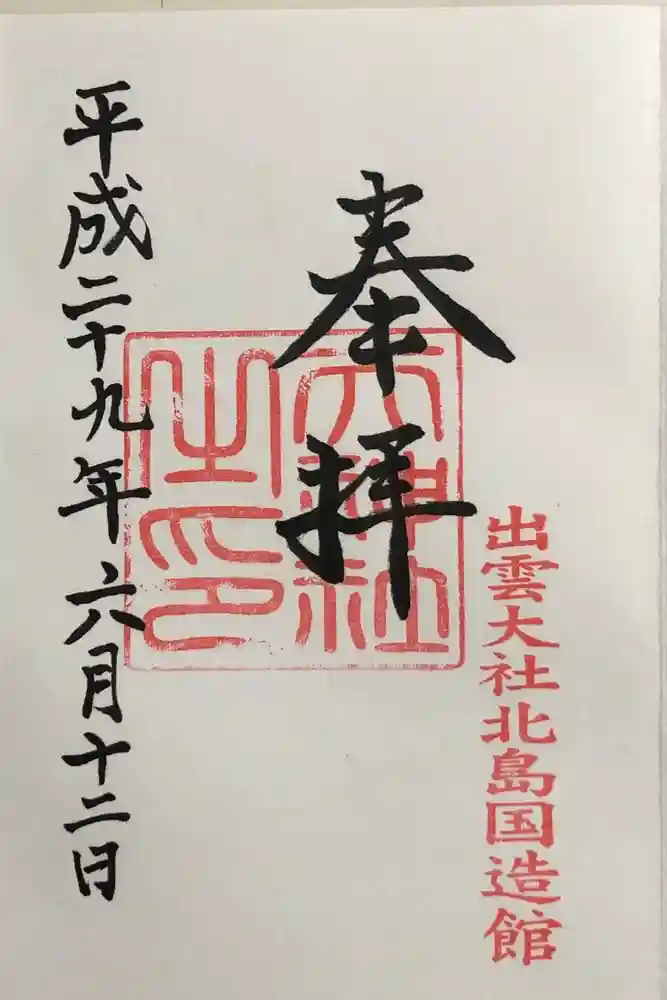 出雲大社北島国造館
奉拝
天神社
之印
平成二十九年六月十二日